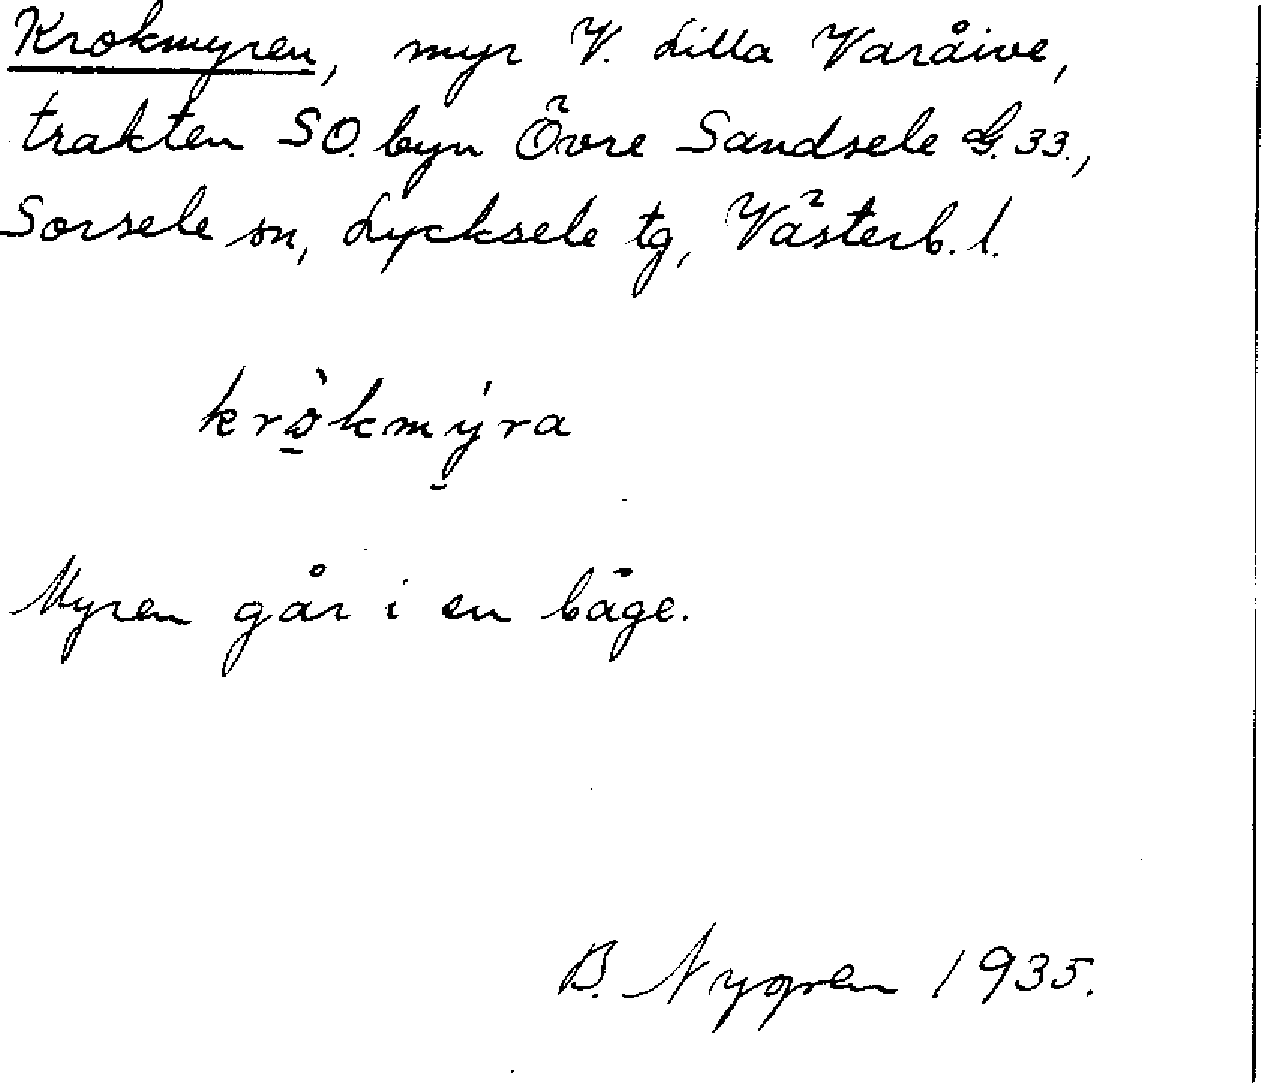 Krokmyren, myr V. Lilla Varåive,
trakten SO. byn Övre Sandsele G. 33.,
Sorsele sn, Lycksele tg, Västerb. l.
krò̠kmý̠ra
Myren går i en båge.
B. Nygren 1935.